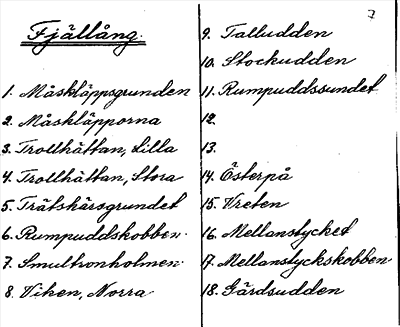 Fjällång.
1. Måskläppsgrunden
2. Måskläpporna
3. Trollhättan, Lilla
4. Trollhättan, Stora
5. Trätskärsgrundet
6. Rumpuddskobben.
7. Smultronholmen.
8. Viken, Norra
7
9. Talludden
10. Stockudden
11. Rumpuddssundet
12.
13.
14. Österpå
15. Vreten
16. Mellanstycket
17. Mellanstyckskobben
18. Gärdsudden